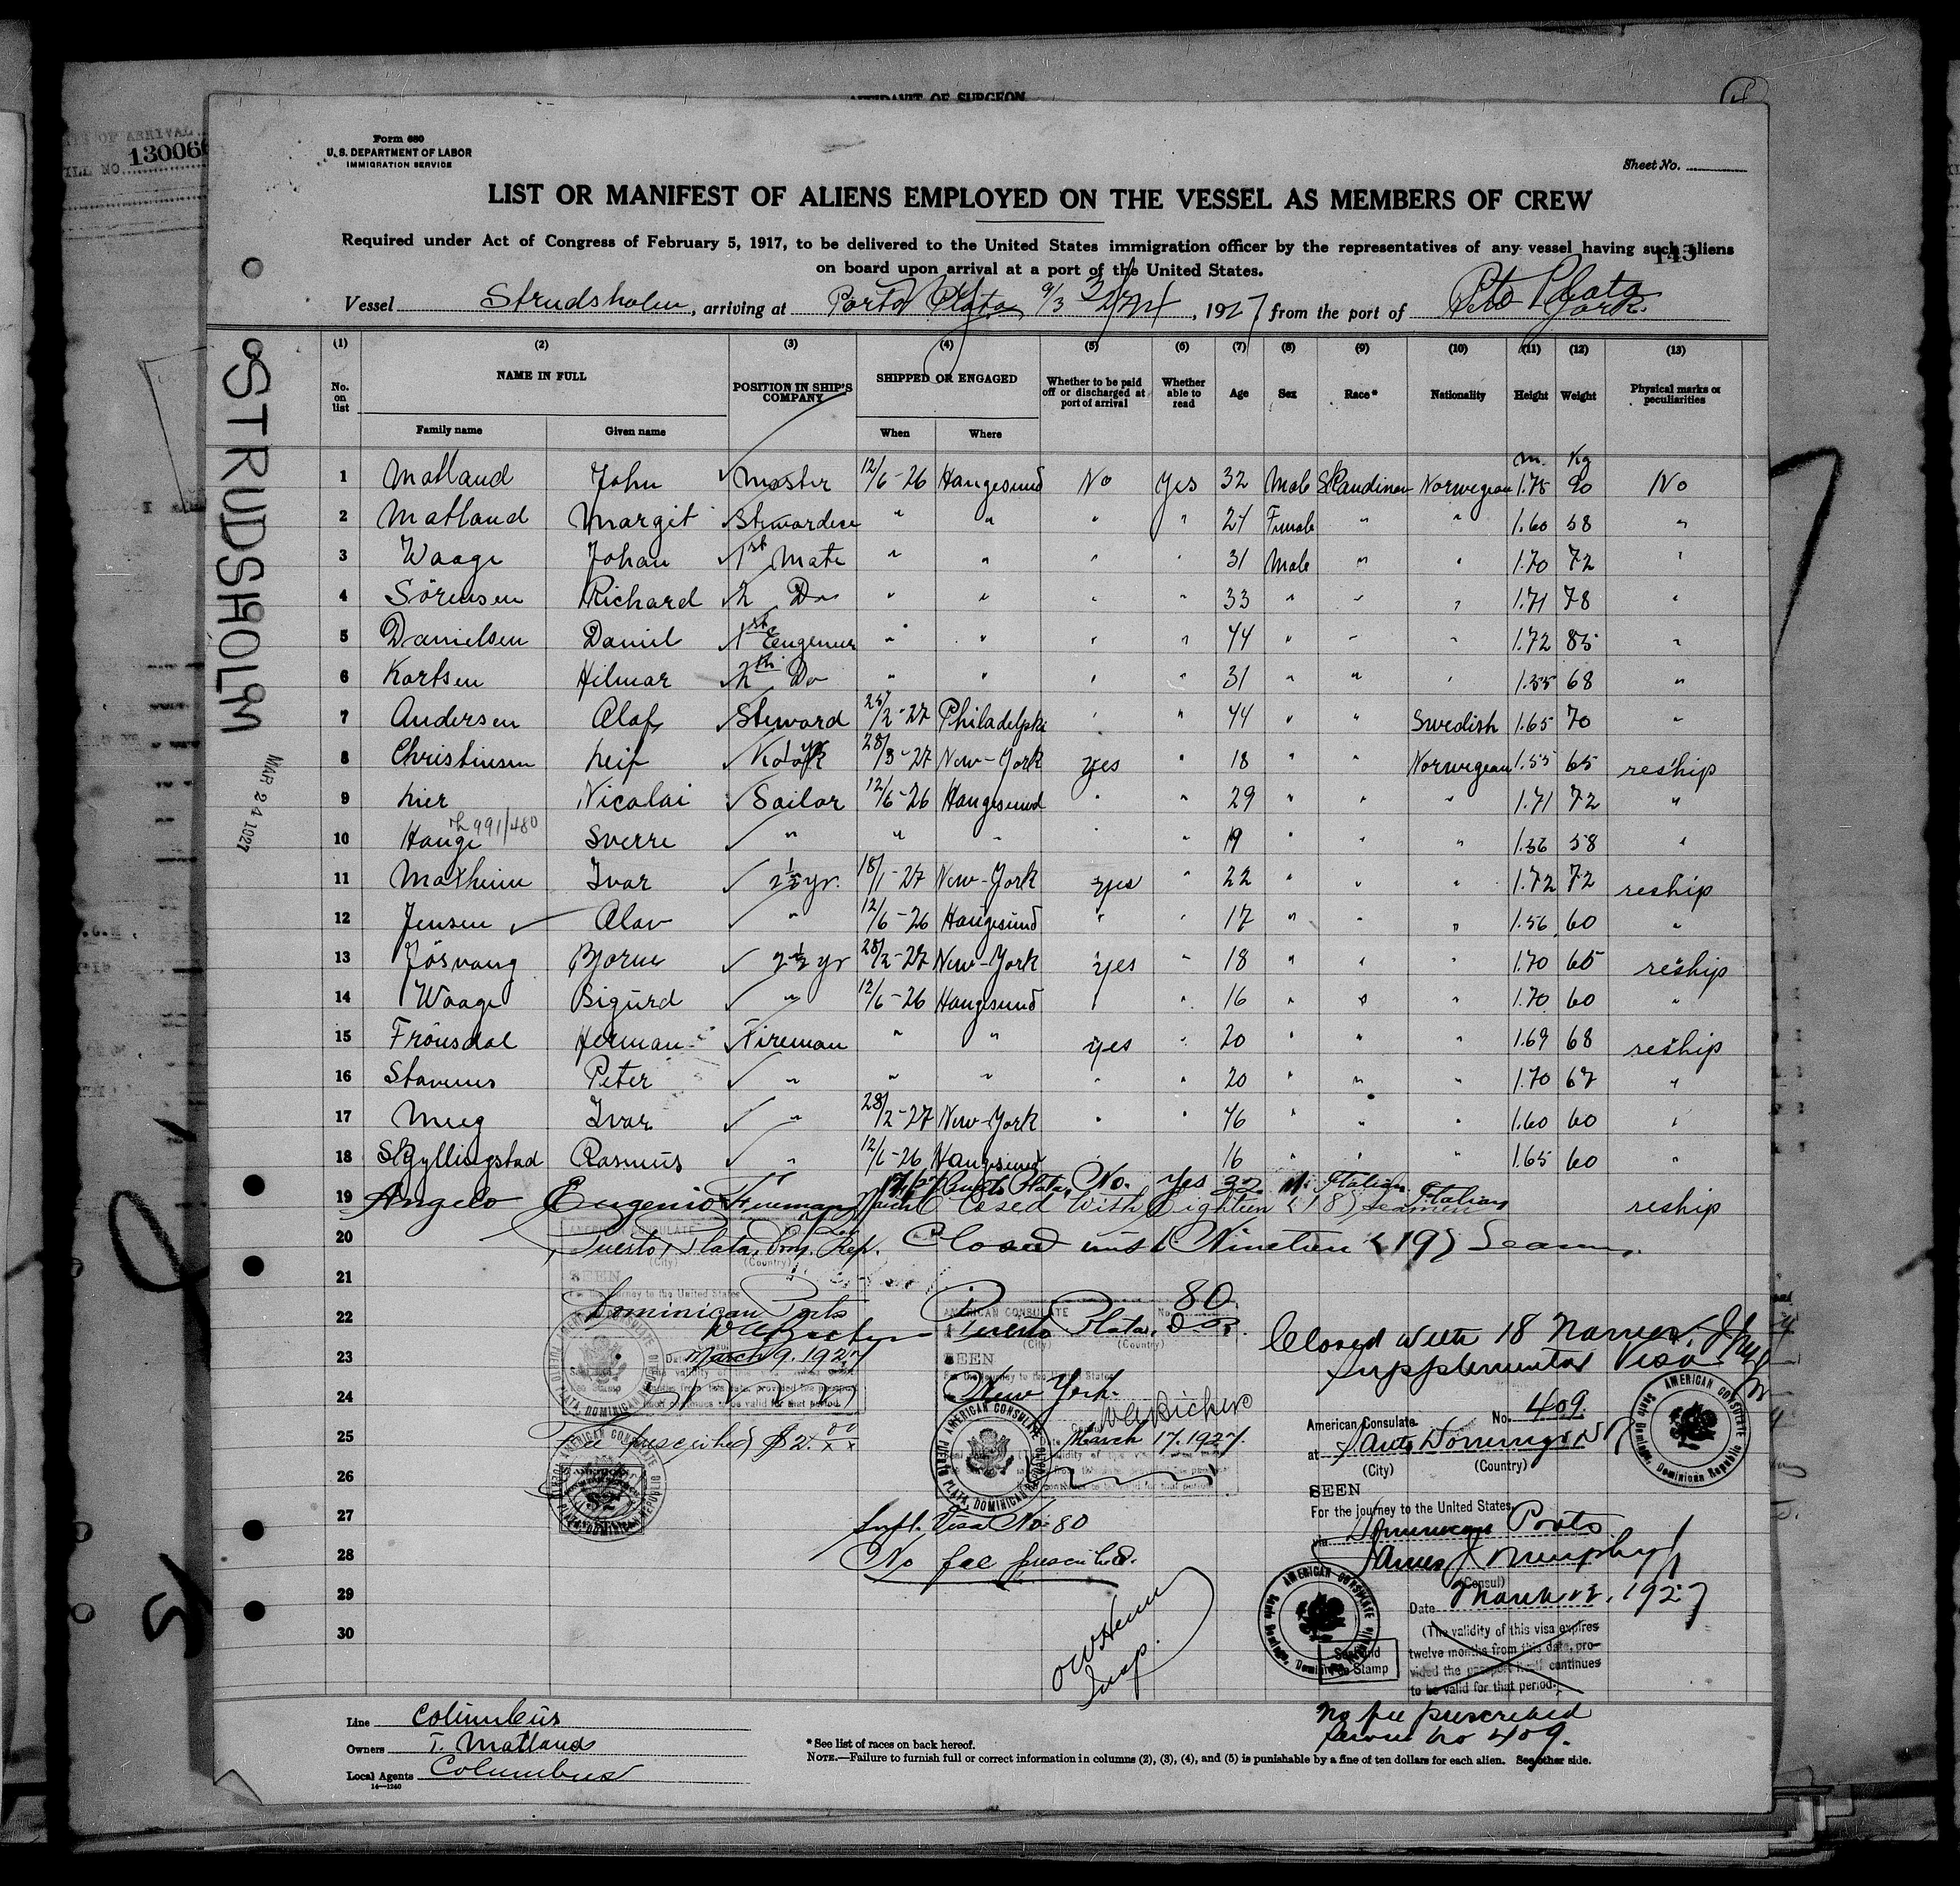 AFFIDAVIT OF SURGEON
OF ARRIVAL
NO. 130066
Form 680
U. S. DEPARTMENT OF LABOR
IMMIGRATION SERVICE
Sheet No.
LIST OR MANIFEST OF ALIENS EMPLOYED ON THE VESSEL AS MEMBERS OF CREW
Required under Act of Congress of February 5, 1917, to be delivered to the United States immigration officer by the representatives of any vessel having such aliens
on board upon arrival at a port of the United States.
143
Vessel Strudsholm, arriving at Porto Plata 9/3, 1927, from the port of
STRUDSHOLM
MAR 24 1927
(1) (2) (3) (4) (5) (6) (7) (8) (9) (10) (11) (12) (13)
No. on list NAME IN FULL POSITION IN SHIP'S COMPANY SHIPPED OR ENGAGED Whether to be paid off or discharged at port of arrival Whether able to read Age Sex Race* Nationality Height Weight Physical marks or peculiarities
Family name Given name When Where
m. Kg
1 Matland John Master 12/6-26 Haugesund No Yes 32 Male Skandinav Norwegian 1.75 90 No
2 Matland Margit Stewardess " " " " 27 Female " " 1.60 58 "
3 Waage Johan 1st Mate " " " " 31 Male " " 1.70 72 "
4 Sörensen Richard 2 Do " " " " 33 " " " 1.71 78 "
5 Danielsen Daniel 1st Engeneer " " " " 44 " " " 1.72 85 "
6 Karlsen Hilmar 2th Do " " " " 31 " " " 1.55 68 "
7 Andersen Olaf Steward /2-27 Philadelphia " " 44 " " Swedish 1.65 70 "
8 Christensen Leif Kock 28/ -27 New-York yes " 18 " " Norwegian 1.55 65 reship
9 Lier Nicolai Sailor 12/6-26 Haugesund " " 29 " " " 1.71 72 "
991/480
10 Hauge Sverre " " " " " 19 " " " 1.56 58 "
11 Mathinn Ivar 2½ yr. 18/1-27 New-York yes " 22 " " " 1.72 72 reship
12 Jensen Olav " 12/6-26 Haugesund " " 17 " " " 1.56 60 "
13 Jösvang Bjorne 2½ yr 28/2-27 New-York yes " 18 " " " 1.70 65 reship
14 Waage Sigurd " 12/6-26 Haugesund " " 16 " " " 1.70 60 "
15 Frönsdal Herman Fireman " " yes " 20 " " " 1.69 68 reship
16 Stavnes Peter " " " " " 20 " " " 1.70 67 "
17 Meeg Ivar " 28/2-27 New-York " " 46 " " " 1.60 60 "
18 Skyllingstad Rasmus " 12/6-26 Haugesund " 16 " " " 1.65 60 "
19 Angelo Eugenio Fireman Puerto Plata No. Yes 32 M. Italian Italian reship
Closed with Eighteen (18) seamen
20 Puerto Plata, Dom. Rep. Closed with Nineteen (19) Seamen
21
22
23
24
25
26
27
28
29
30
AMERICAN CONSULATE
(City) (Country)
SEEN
For the journey to the United States
Dominican Ports
March 9, 1927
Fee prescribed $2.00
AMERICAN CONSULATE No. 80
Puerto Plata, D.R.
(City) (Country)
SEEN
For the journey to the United States
New York
W A Bickers
March 17, 1927.
AMERICAN CONSULATE PUERTO PLATA, DOMINICAN REPUBLIC
Supl. Visa No. 80
No fee prescribed.
Insp.
Closed with 18 Names.
Supplemental Visa
American Consulate No. 409.
at Santo Domingo, D.R.
(City) (Country)
SEEN
For the journey to the United States
via Dominican Ports
James J. Murphy Jr
(Consul)
Date March 12, 1927
(The validity of this visa expires
twelve months from this date, pro-
vided the passport itself continues
to be valid for that period.)
AMERICAN CONSULATE Santo Domingo, Dominican Republic
Seal and
Stamp
No fee prescribed
Service no 409.
Line Columbus
Owners T. Matland
Local Agents Columbus
14—1240
* See list of races on back hereof.
NOTE.—Failure to furnish full or correct information in columns (2), (3), (4), and (5) is punishable by a fine of ten dollars for each alien. See other side.